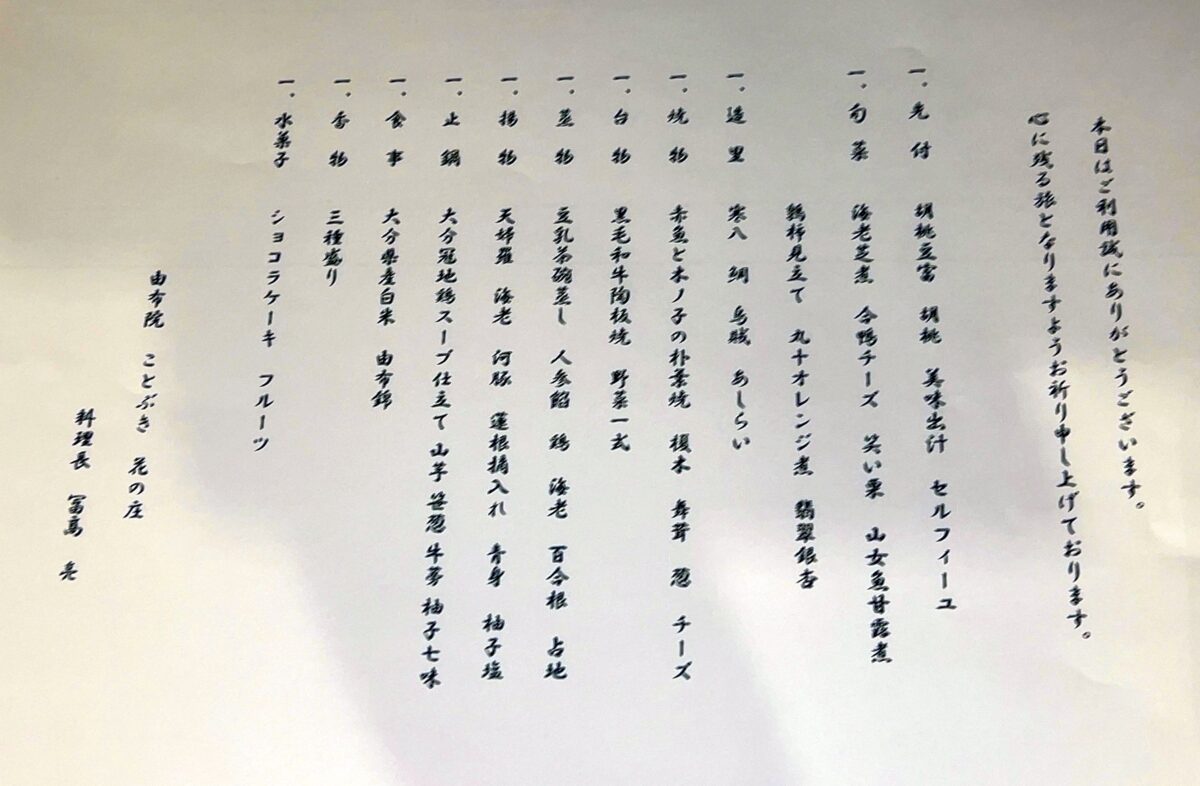 本日はご利用誠にありがとうございます。
心に残る旅となりますようお祈り申し上げております。
一．先付　胡桃豆富　胡桃　美味出汁　セルフィーユ
一．旬菜　海老芝煮　合鴨チーズ　笑い栗　山女魚甘露煮
鶉柿見立て　丸十オレンジ煮　翡翠銀杏
一．造里　寒八　鯛　烏賊　あしらい
一．焼物　赤魚と木ノ子の朴葉焼　榎木　舞茸　葱　チーズ
一．台物　黒毛和牛陶板焼　野菜一式
一．蒸物　豆乳茶碗蒸し　人参餡　鶏　海老　百合根　占地
一．揚物　天婦羅　海老　河豚　蓮根摘入れ　青身　柚子塩
一．止鍋　大分冠地鶏スープ仕立て　山芋　笹葱　牛蒡　柚子七味
一．食事　大分県産白米　由布錦
一．香物　三種盛り
一．水菓子　ショコラケーキ　フルーツ
由布院　ことぶき　花の庄
料理長　冨高　亮